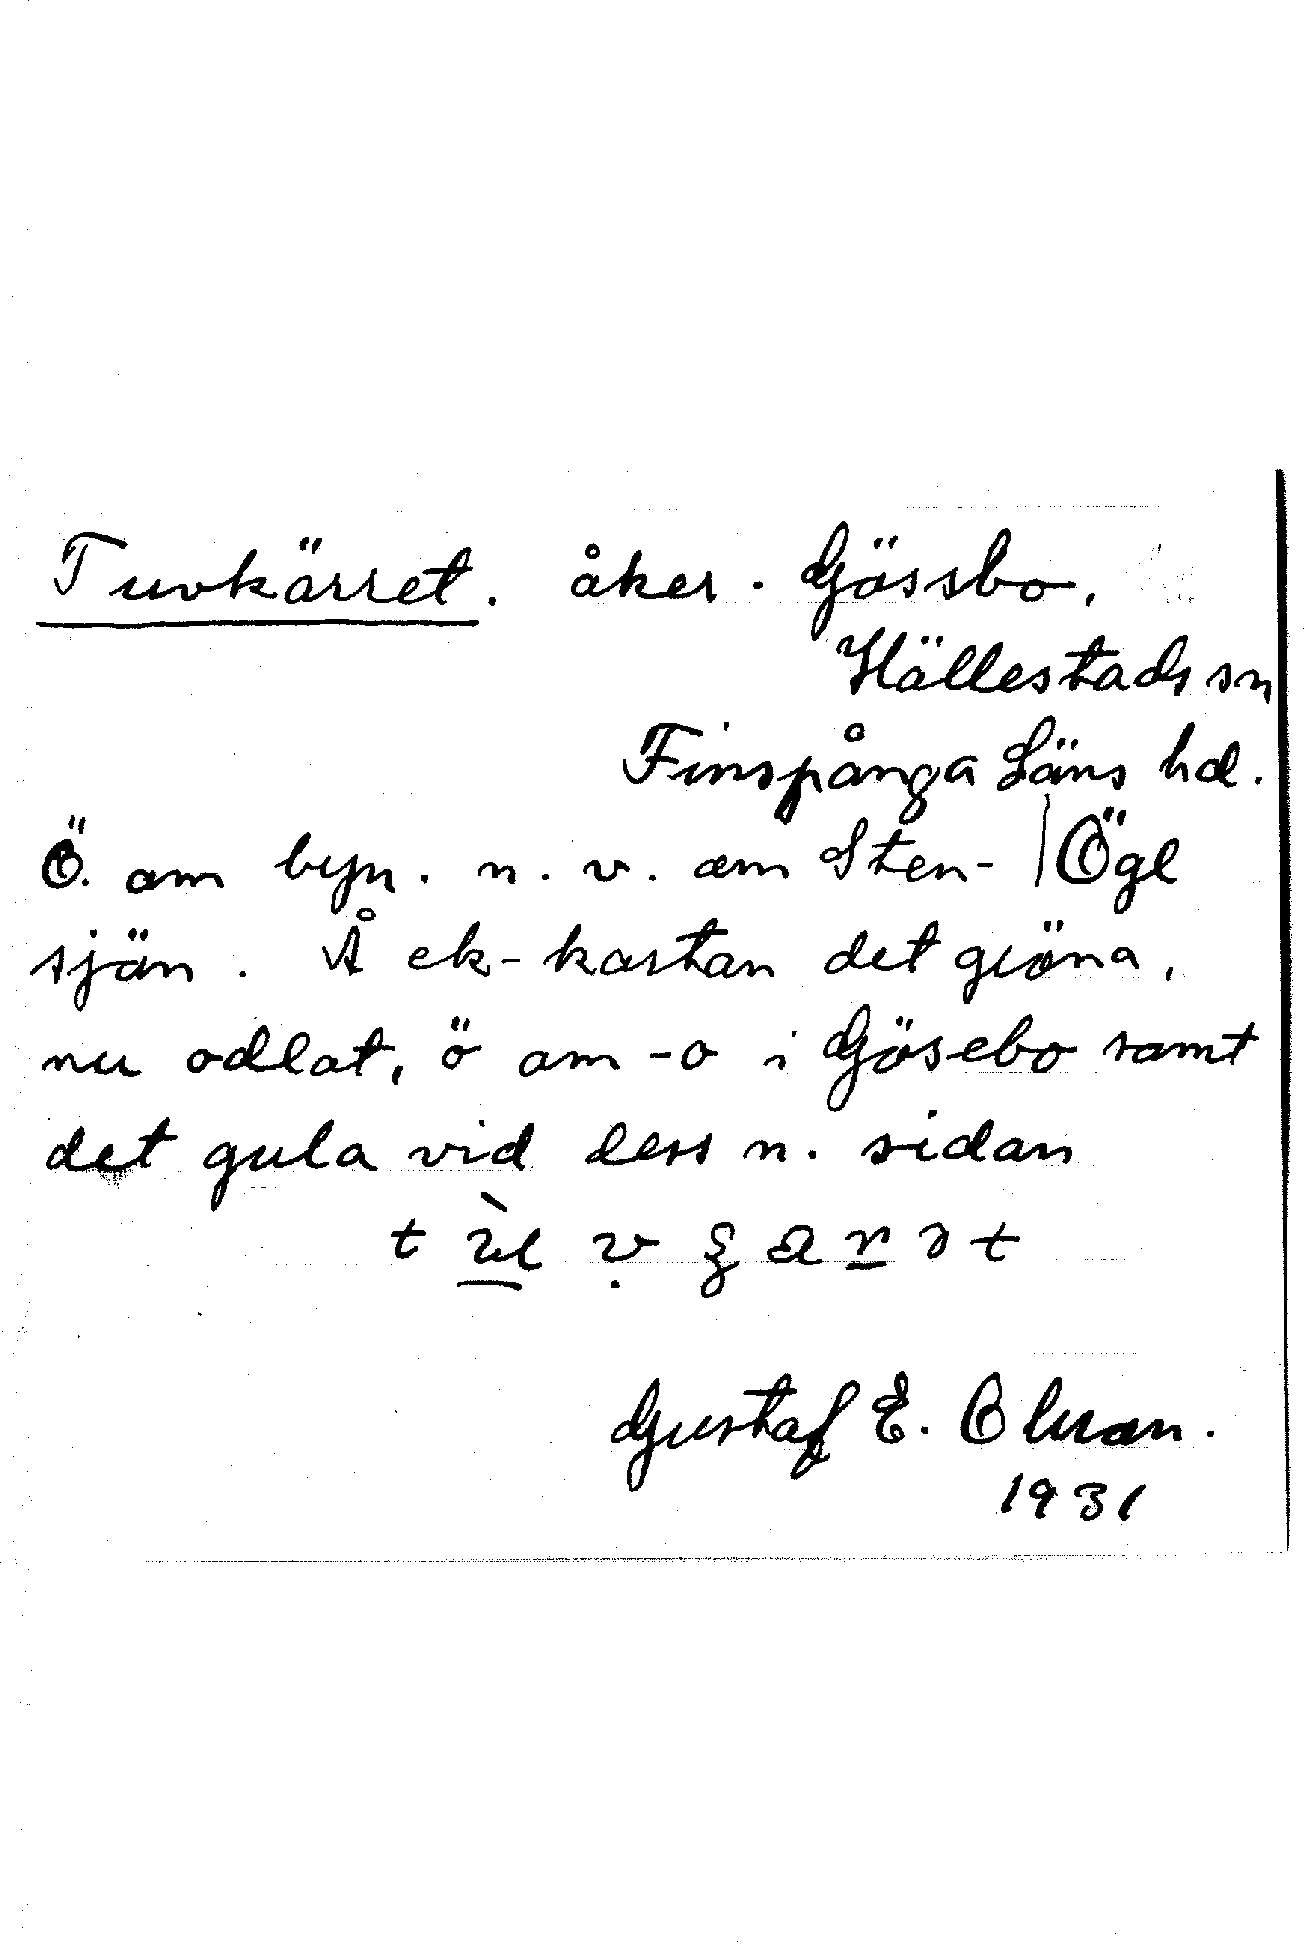 Tuvkärret. åker. Gössbo,
Hällestads sn
Finspånga Läns hd.
Ö. om byn. n. v. om Sten- | Ögl
sjön. Å ek-kartan det gröna,
nu odlat, ö om -o i Gösebo samt
det gula vid dess n. sidan
Gustaf E. Olsson.
1931